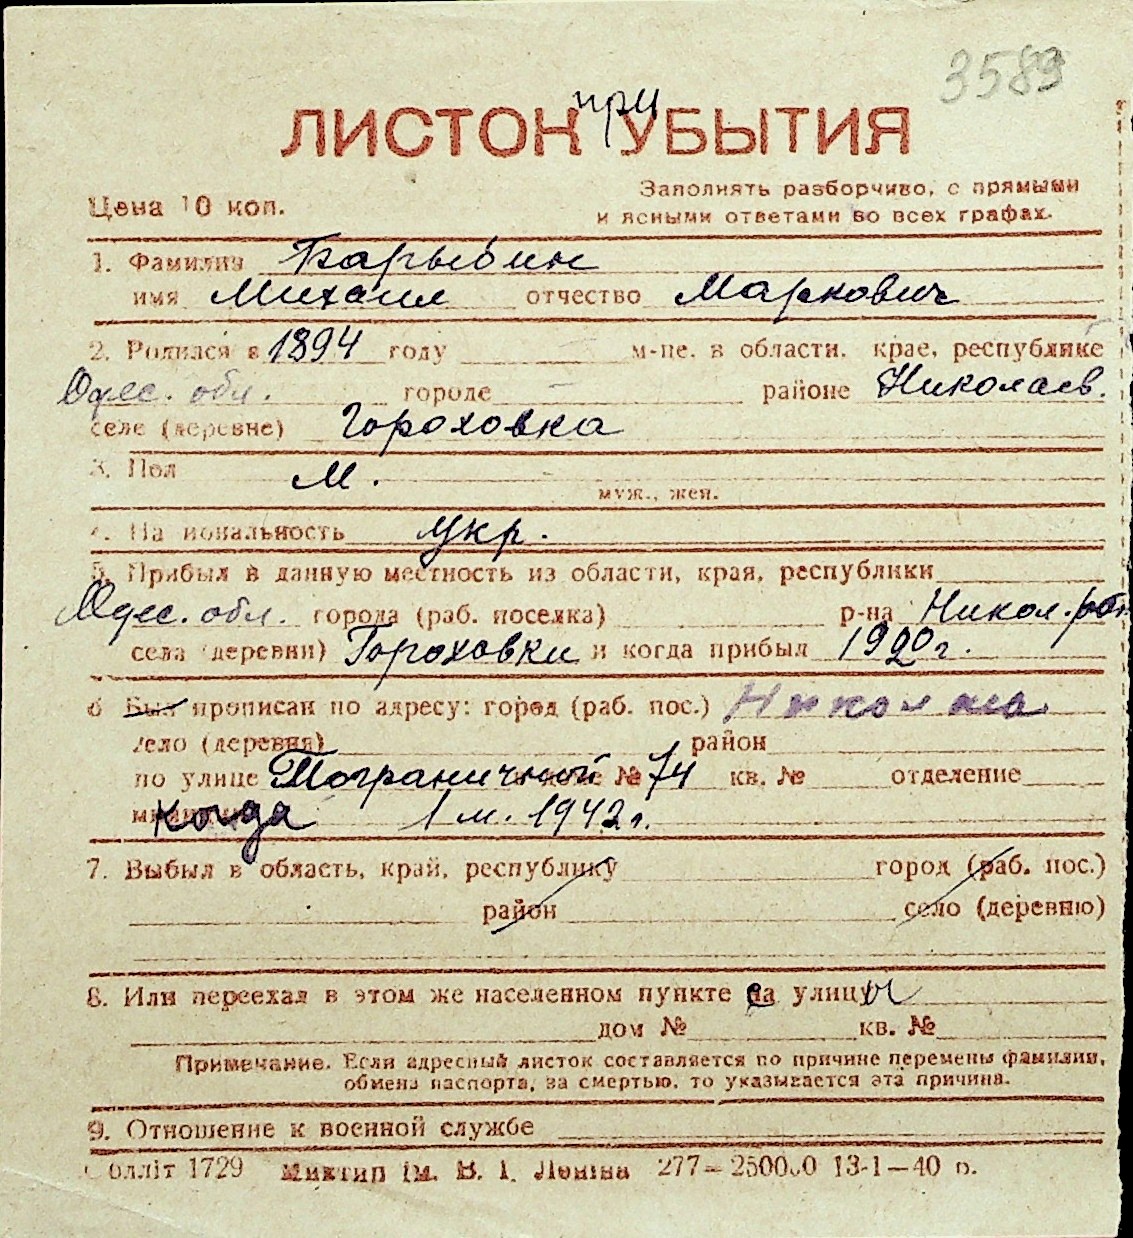 3589
ЛИСТОК при УБЫТИЯ
Цена 10 коп.
Заполнять разборчиво, с прямыми
и ясными ответами во всех графах.
1. Фамилия Барыбин
имя Михаил отчество Маркович
2. Родился в 1894 году м-це. в области. крае, республике
Одес. обл. городе — районе Николаев.
селе (деревне) Гороховка
3. Пол м.
муж., жен.
4. Национальность укр.
5. Прибыл в данную местность из области, края, республики
Одес. обл. города (раб. поселка) р-на Никол. рай
села (деревни) Гороховки и когда прибыл 1920 г.
6 Был прописан по адресу: город (раб. пос.) Николаев
село (деревня) район
по улице Пограничной № 74 кв. № отделение
Когда 1 м. 1942 г.
7. Выбыл в область, край, республику город (раб. пос.)
район село (деревню)
8. Или переехал в этом же населенном пункте са улицы
дом № кв. №
Примечание. Если адресный листок составляется по причине перемены фамилии,
обмена паспорта, за смертью, то указывается эта причина.
9. Отношение к военной службе
Обллiт 1729 Миктип iм. В. I. Ленiна 277—250000 13-1—40 р.